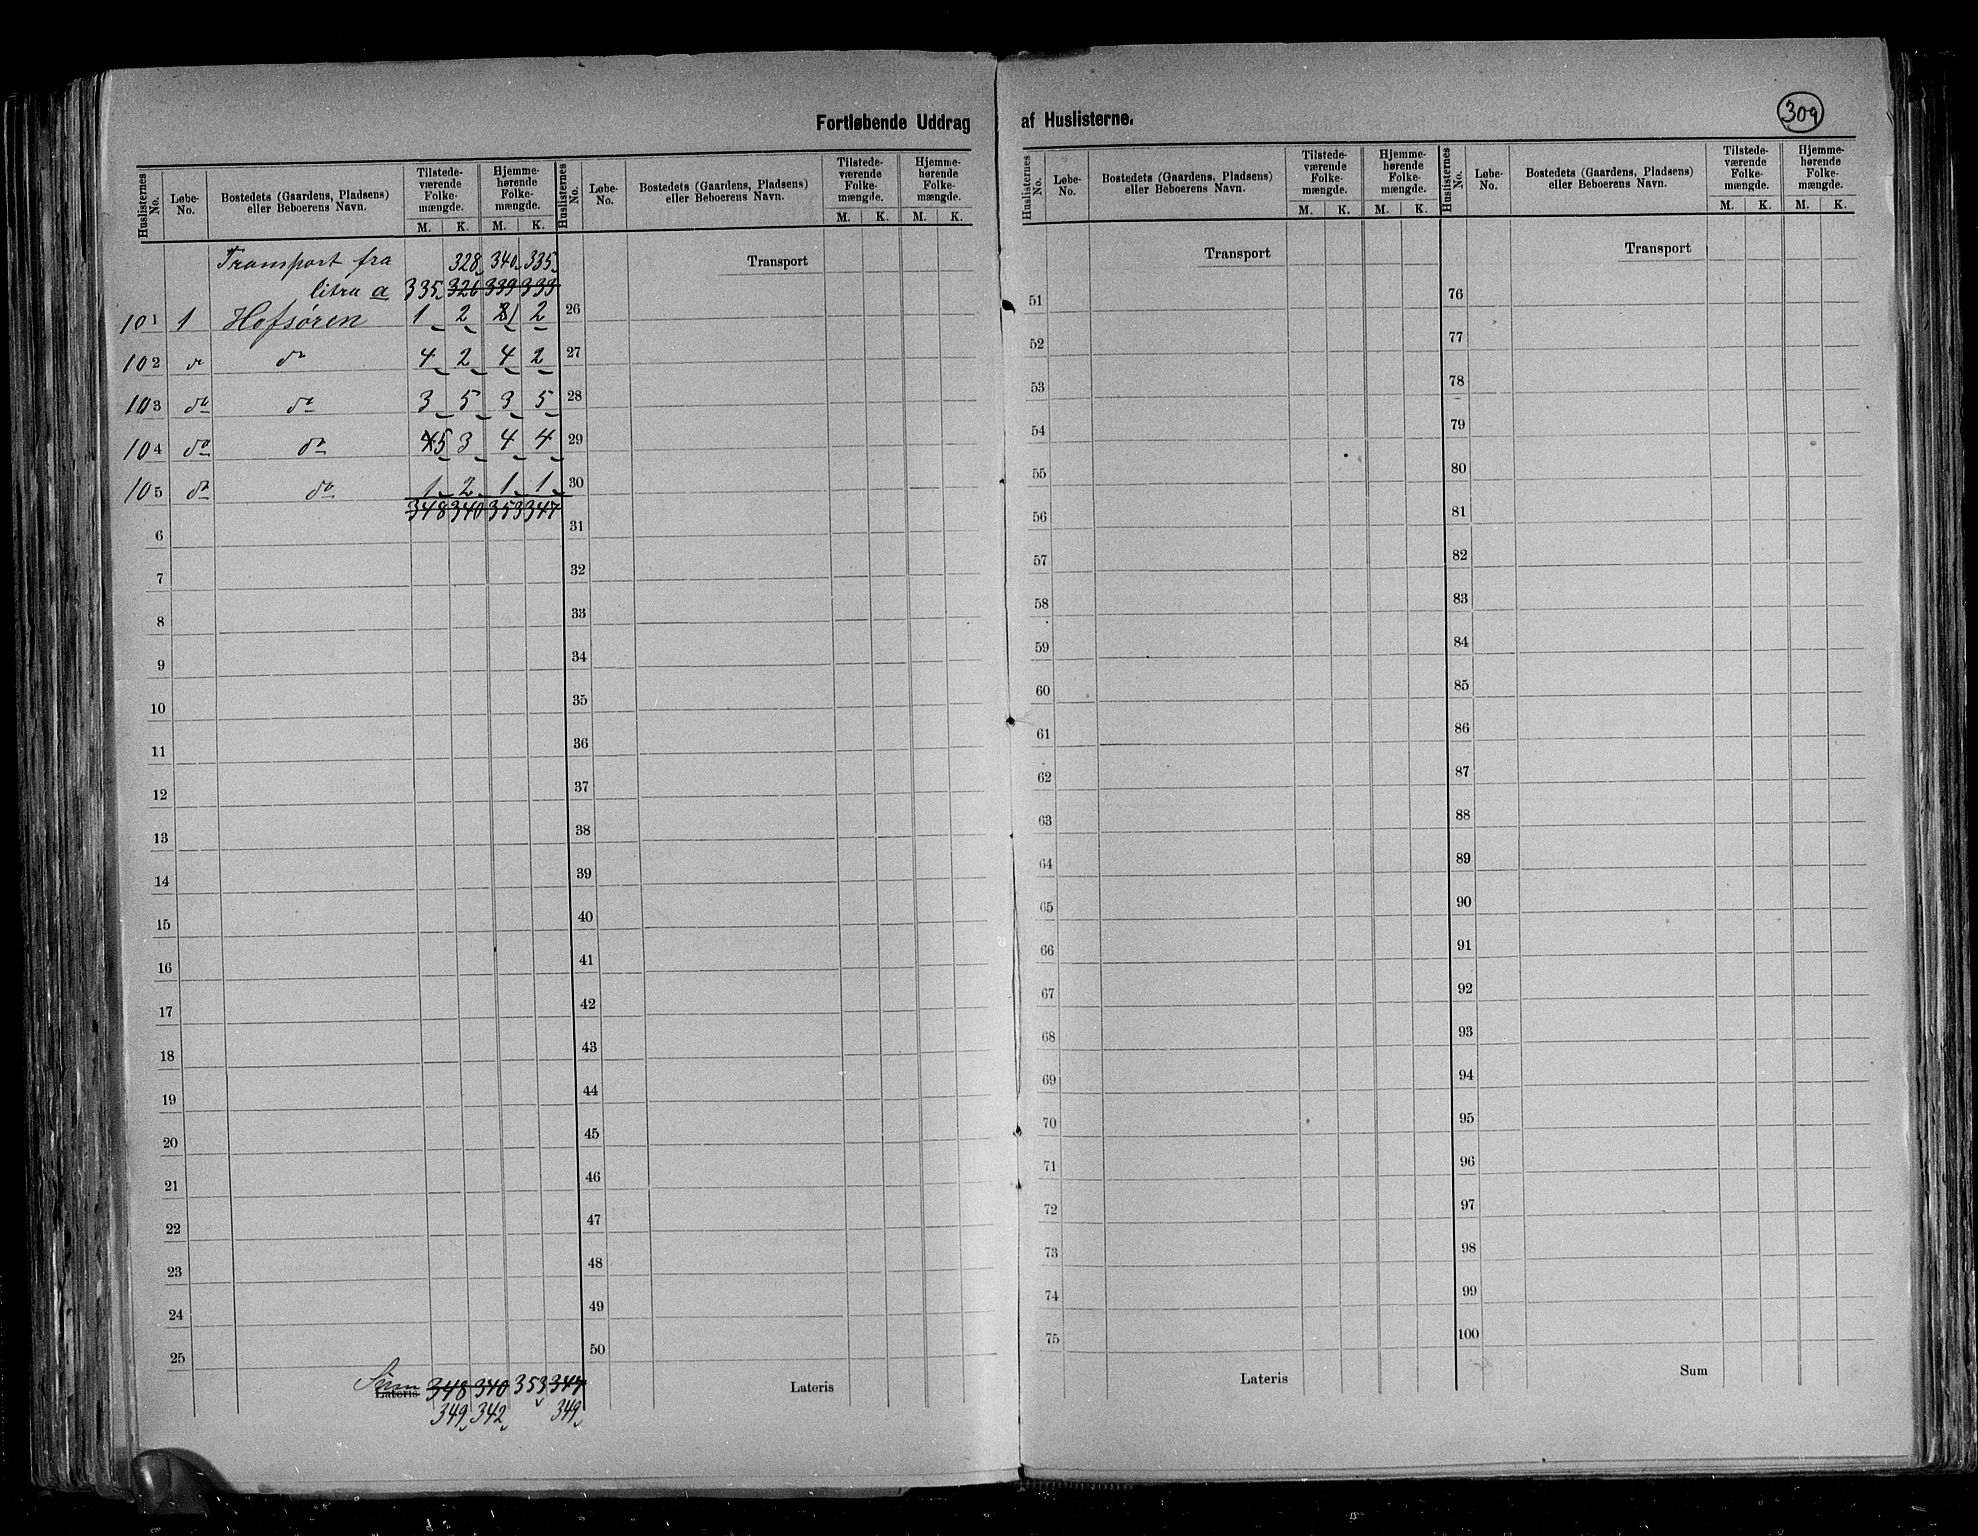 Fortløbende Uddrag af Huslisterne.
309
Huslisternes No. Løbe-No. Bostedets (Gaardens, Pladsens) eller Beboerens Navn. Tilstedeværende Folkemængde. Hjemmehørende Folkemængde.
M. K. M. K.
Huslisternes No. Løbe-No. Bostedets (Gaardens, Pladsens) eller Beboerens Navn. Tilstedeværende Folkemængde. Hjemmehørende Folkemængde.
M. K. M. K.
Transport fra 328 340 335
litra a 335 326 339 333
101 1 Hofsøren 1 2 21 2
102 do do 4 2 4 2
103 do do 3 5 3 5
104 do do 45 3 4 4
105 do do 1 2 1 1
348 340 353 347
6
7
8
9
10
11
12
13
14
15
16
17
18
19
20
21
22
23
24
25
Sum Lateris 348 340 353 347
349 342 349
Transport
26
27
28
29
30
31
32
33
34
35
36
37
38
39
40
41
42
43
44
45
46
47
48
49
50
Lateris
Huslisternes No. Løbe-No. Bostedets (Gaardens, Pladsens) eller Beboerens Navn. Tilstedeværende Folkemængde. Hjemmehørende Folkemængde.
M. K. M. K.
Transport
51
52
53
54
55
56
57
58
59
60
61
62
63
64
65
66
67
68
69
70
71
72
73
74
75
Lateris
Huslisternes No. Løbe-No. Bostedets (Gaardens, Pladsens) eller Beboerens Navn. Tilstedeværende Folkemængde. Hjemmehørende Folkemængde.
M. K. M. K.
Transport
76
77
78
79
80
81
82
83
84
85
86
87
88
89
90
91
92
93
94
95
96
97
98
99
100
Sum